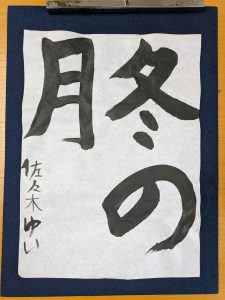 冬の
月
佐々木ゆい